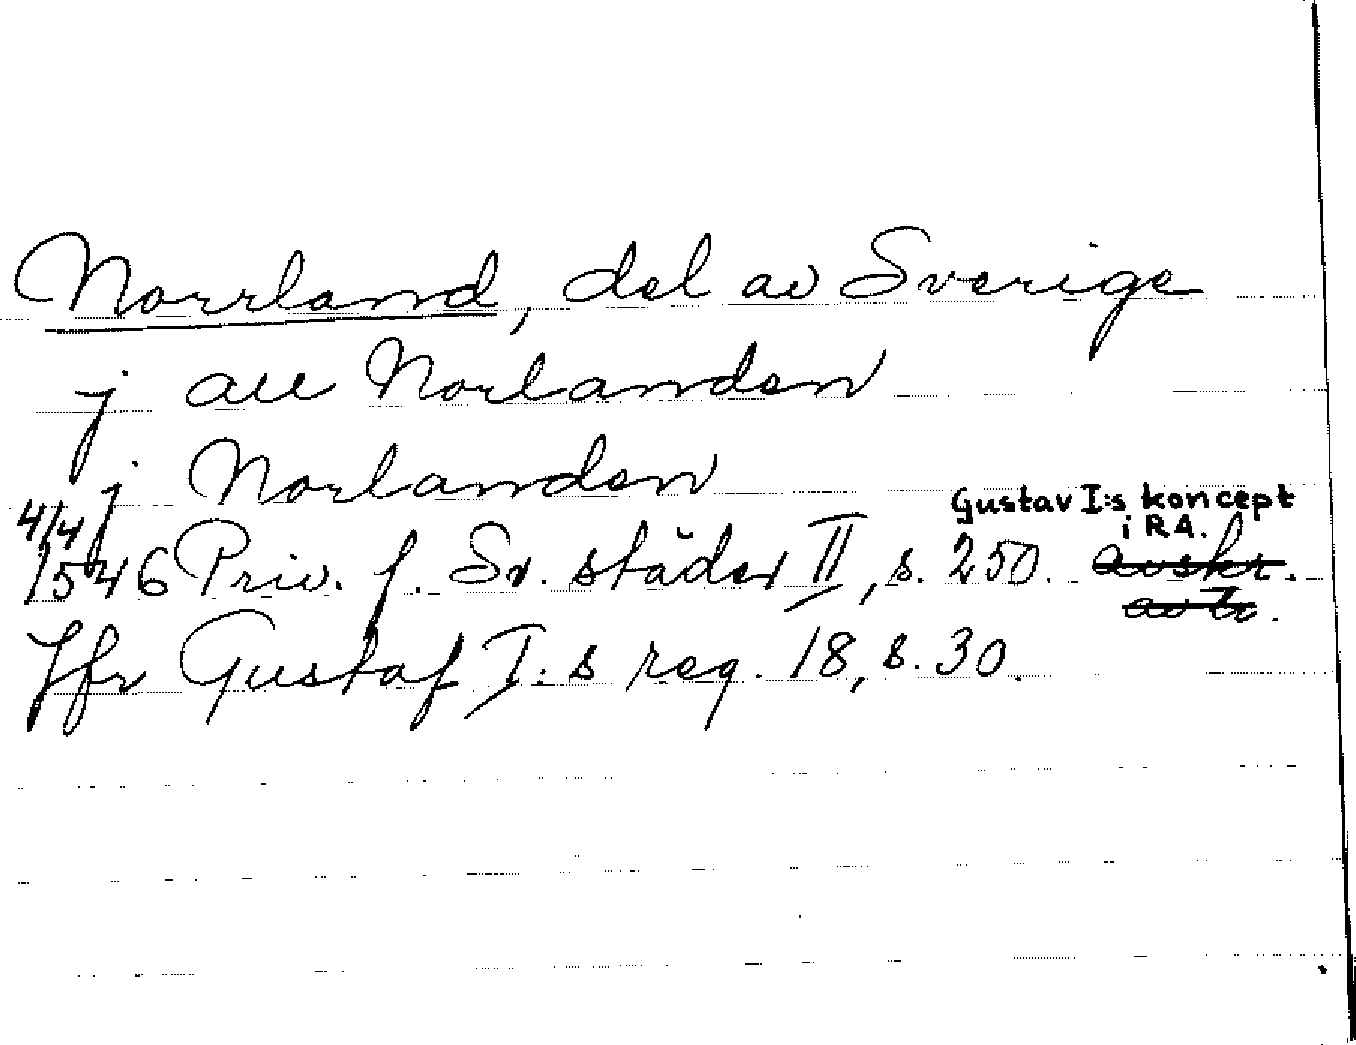 Norrland, del av Sverige
j all Norlanden
j Norlanden
Gustav I:s koncept
i RA.
4/4
1546 Priv. f. Sv. städer II, s. 250. avskr.
Jfr Gustaf I:s reg. 18, s. 30.